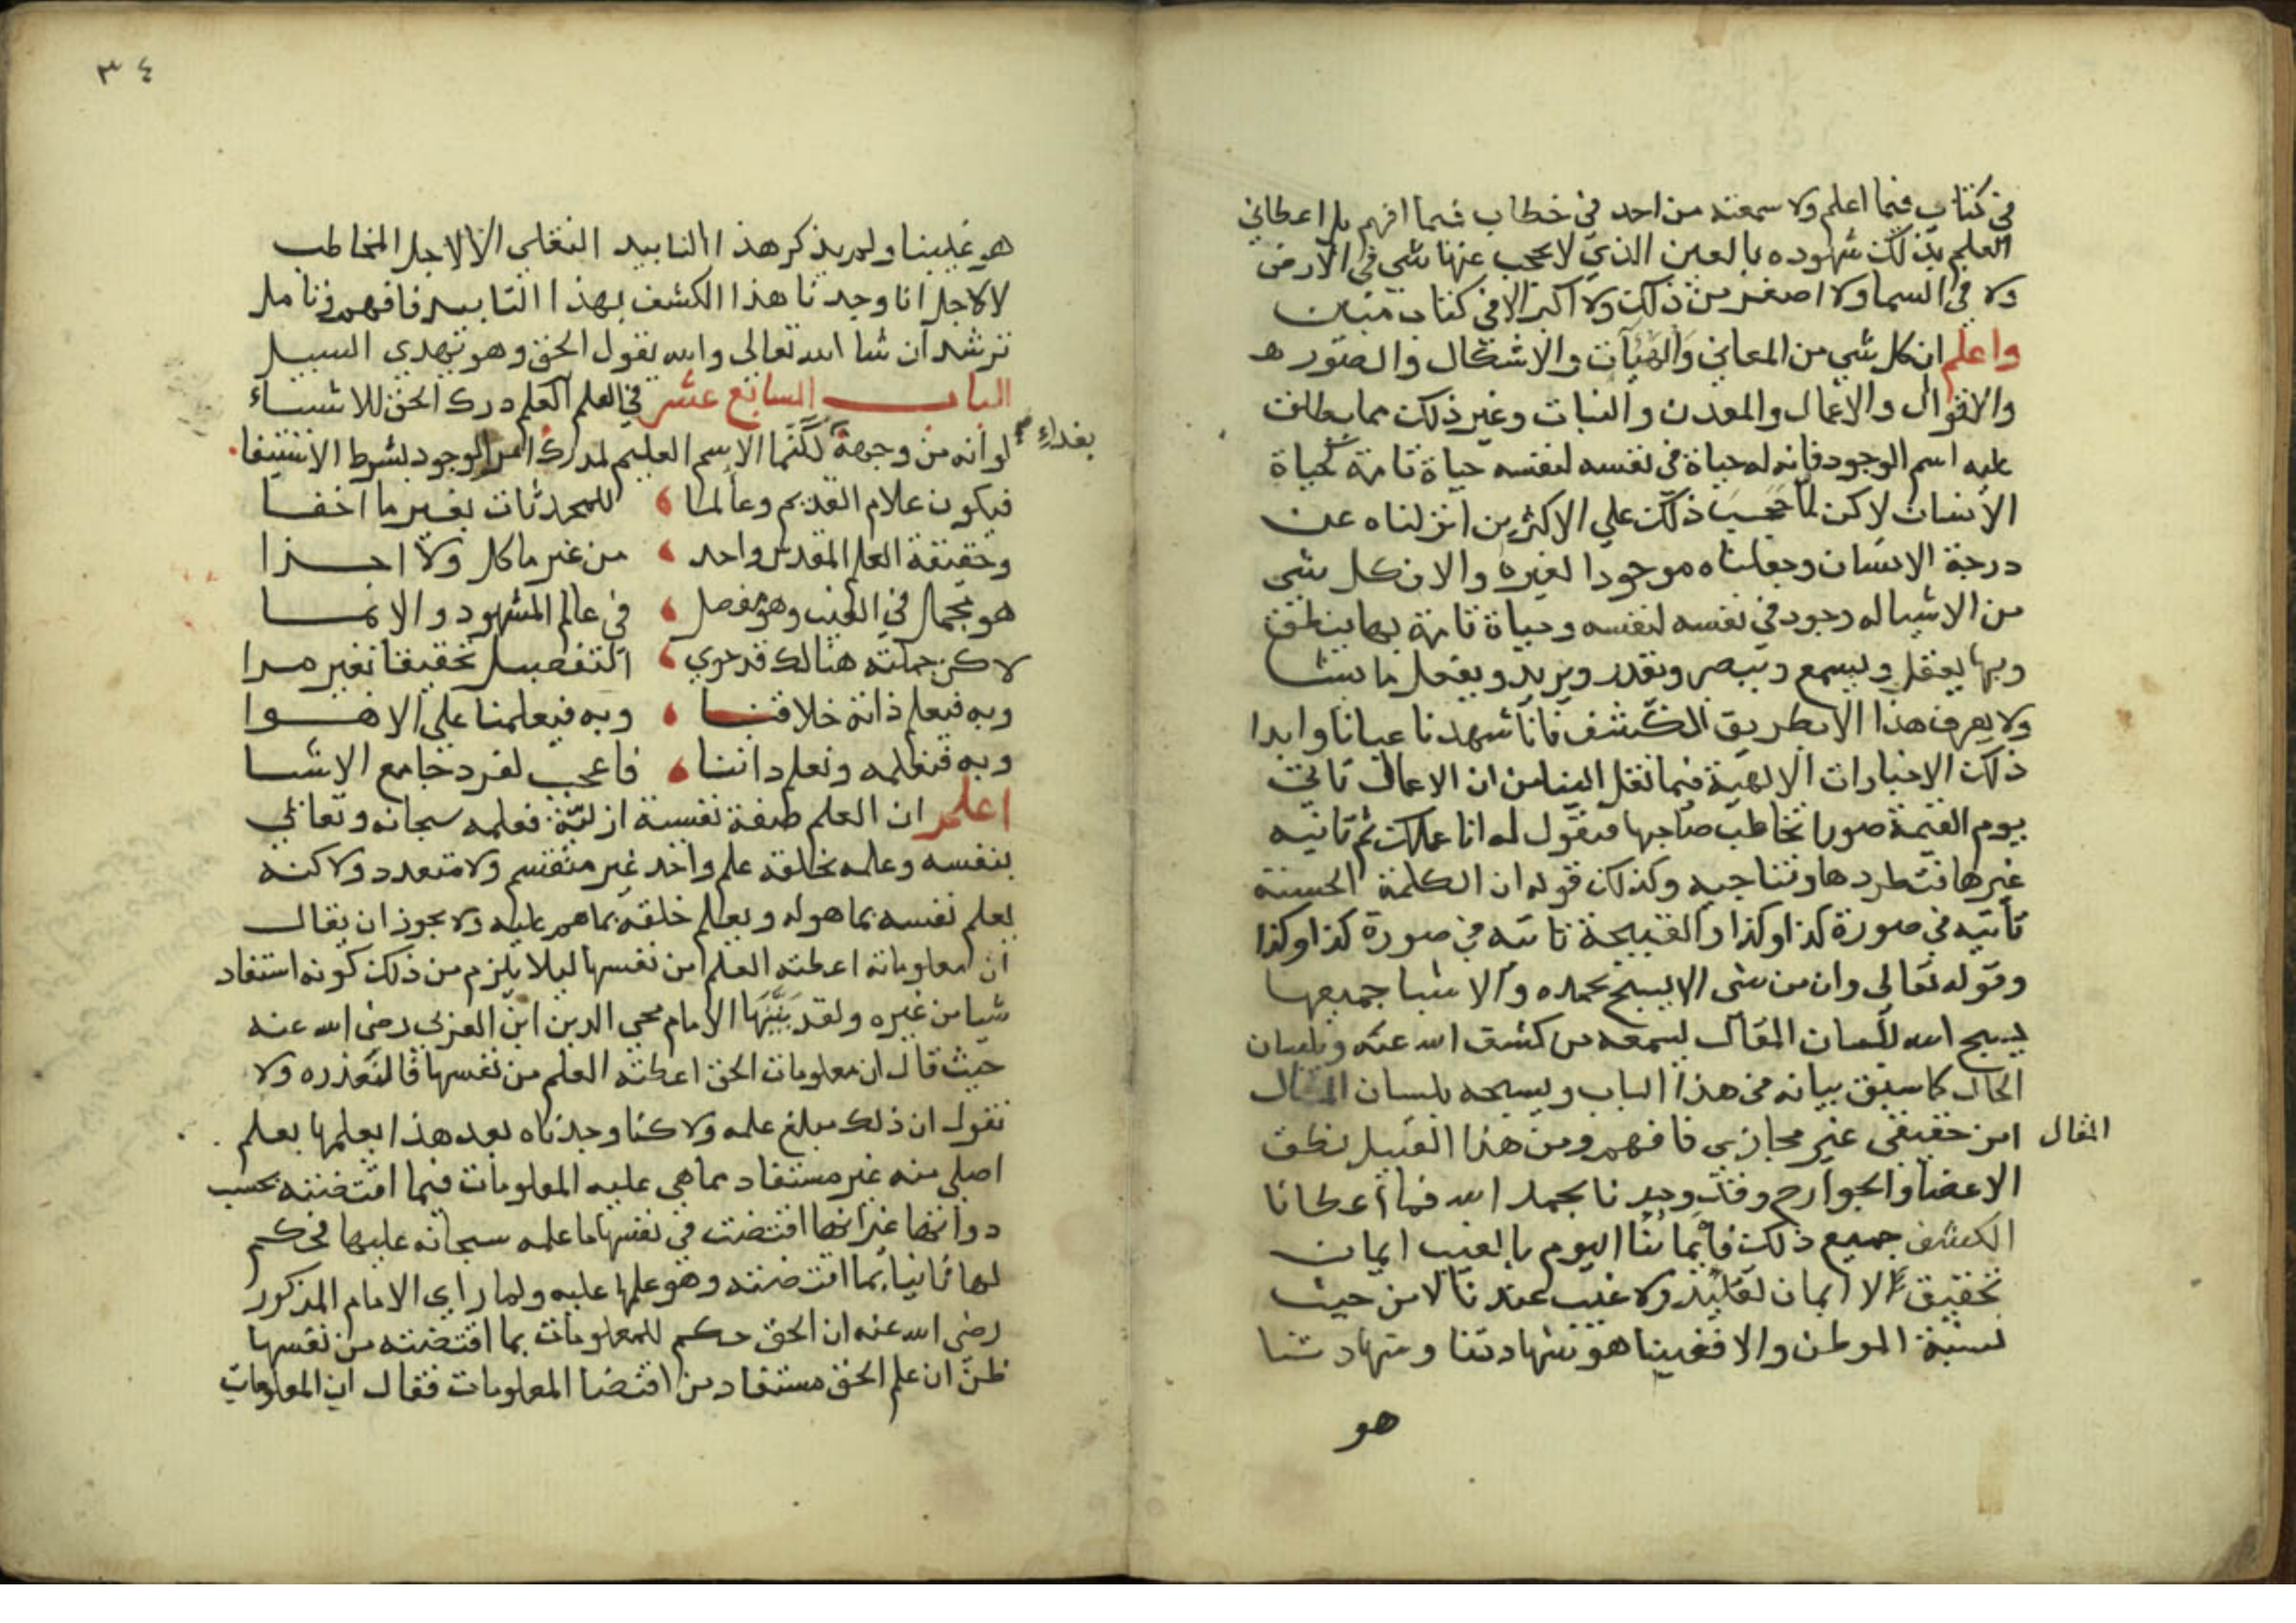 في كتاب فيما اعلم ولا سمعته من احد في خطاب فيما افهم بل اعطاني
العلم بذلك شهوده بالعين الذي لا يحجب عنها شي في الارض
ولا في السما ولا اصغر من ذلك ولا اكبر الا في كتاب مبين
واعلم ان كل شي من المعاني والهيآت والاشكال والصور
والاقوال والاعمال والمعدن والنبات وغير ذلك مما يطلق
عليه اسم الوجود فانه له حياة في نفسه لنفسه حياة تامة كحياة
الانسان لاكن لما حجب ذلك علي الاكثرين انزلناه عن
درجة الانسان وجعلناه موجودا لغيره والا فكل شي
من الاشيا له وجود في نفسه لنفسه وحياة تامة بها ينطق
وبها يعقل ويسمع ويبصر ويقدر ويريد ويفعل ما يشا
ولا يعرف هذا الا بطريق الكشف فانا شهدنا عيانا وايدا
ذلك الاخبارات الالهية فيما نقل الينا من ان الاعمال تاتي
يوم القيمة صورا تخاطب صاحبها فتقول له انا عملك ثم تاتيه
غيرها فتطردها وتناجيه وكذلك قوله ان الكلمة الحسنة
تأتيه في صورة كذا وكذا والقبيحة تاتيه في صورة كذا وكذا
وقوله تعالي وان من شي الا يسبح بحمده والاشيا جميعها
يسبح الله بلسان المقال يسمعه من كشف الله عنه وبلسان
الحال كما سبق بيانه في هذا الباب ويسبحه بلسان
المقال
امر حقيقي غير مجازي فافهم ومن هذا القبيل نطق
الاعضا والجوارح وقد وجدنا بحمد الله فيما أعطانا
الكشف جميع ذلك فايماننا اليوم بالغيب ايمان
تحقيق لا ايمان تقليد ولا غيب عندنا لا من حيث
نسبة الموطن والا فغيبنا هو شهادتنا وشهادتنا
هو
٣٤
هو غيبنا ولم يذكر هذا التاييد النقلي الا لاجل المخاطب
لا لاجل انا وجدنا هذا الكشف بهذا التاييد فافهم وتامل
ترشد ان شا الله تعالى والله يقول الحق وهو يهدي السبيل
الباب السابع عشر في العلم العلم درك الحق للاشياء
لو انه من وجهة
بغداء
لكنما الاسم العليم لمدرك امر الوجود بشرط الاستيفا
فيكون علام القديم وعالما للمحدثات بغير ما اخفا
وحقيقة العلم المقدس واحد من غير ما كل ولا اجزا
هو مجمل في الغيب وهو مفصل في عالم المشهود والانما
لاكن جملته هنالك قد حوي التفصيل تحقيقا بغير مرا
وبه فيعلم ذاته خلاقنا وبه فيعلمنا علي الاهوا
وبه فنعلمه ونعلم ذاتنا فاعجب لفرد جامع الاشيا
اعلم ان العلم صفة نفسية ازلية فعلمه سبحانه وتعالي
بنفسه وعلمه بخلقه علم واحد غير منقسم ولا متعدد ولاكنه
يعلم نفسه بما هو له ويعلم خلقه بما هم عليه ولا يجوز ان يقال
ان معلوماته اعطته العلم من نفسها ليلا يلزم من ذلك كونه استفاد
شيا من غيره ولقد الامام محي الدين ابن العربي رضي الله عنه
حيث قال ان معلومات الحق اعطته العلم من نفسها فالنعذره ولا
نقول ان ذلك مبلغ علمه ولاكنا وجدناه بعد هذا يعلمها بعلم
اصلي منه غير مستفاد مما هي عليه المعلومات فيما اقتضته بحسب
ذواتها غير انها اقتضت في نفسها ما علمه سبحانه عليها فحكم
لها ثانيا بما اقتضته وهو علمها عليه ولما راى الامام المذكور
رضي الله عنه ان الحق حكم للمعلومات بما اقتضته من نفسها
ظن ان علم الحق مستفاد من اقتضا المعلومات فقال ان المعلومات